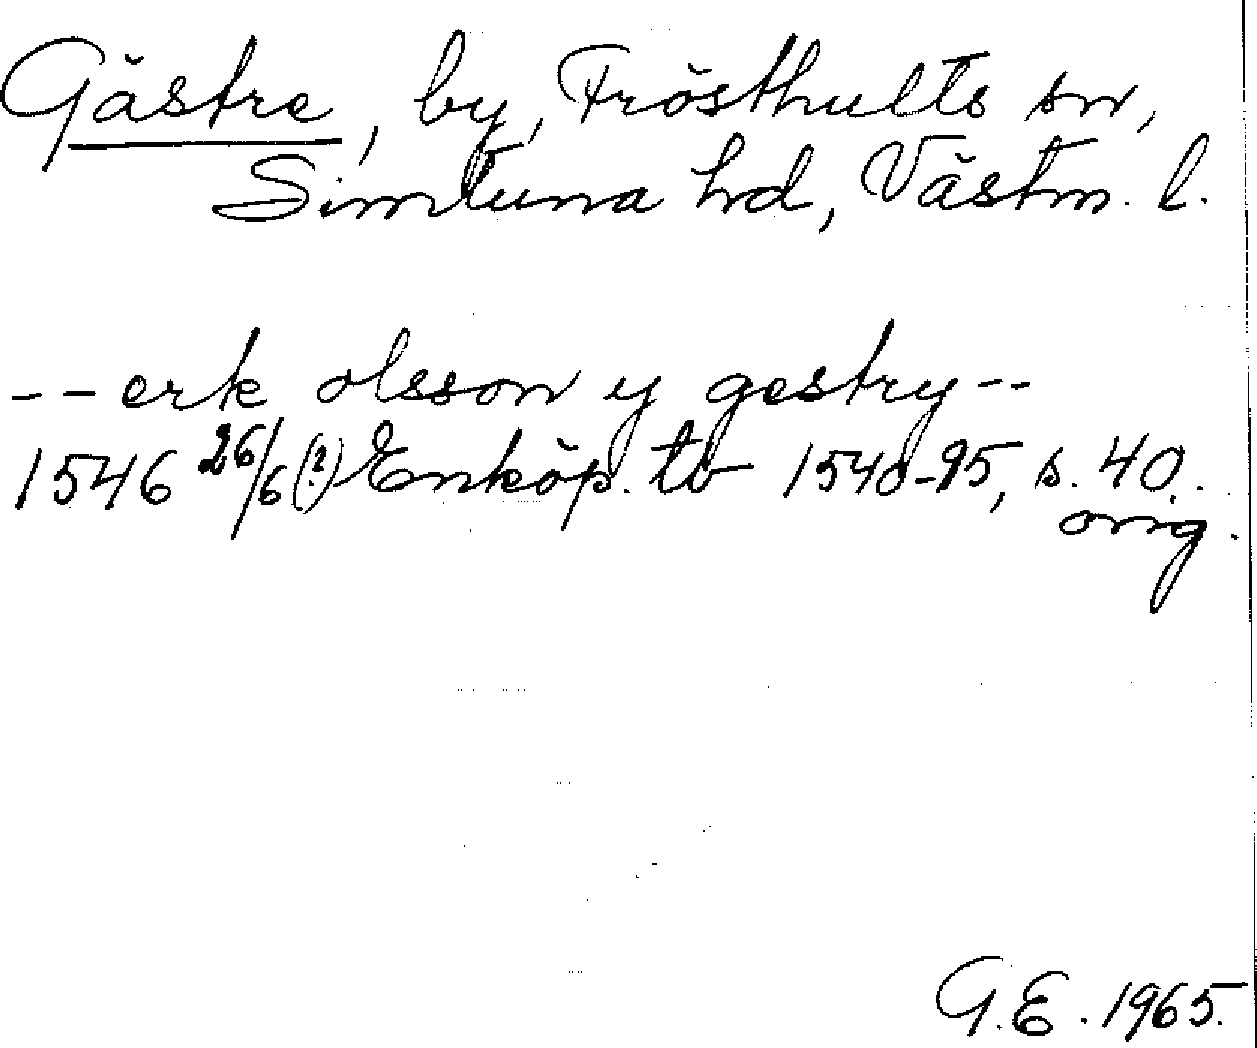 Gästre, by, Frösthults sn,
Simtuna hd, Västm. l.
-- erk olsson y gestry --
1546 26/6 (?) Enköp. tb 1540-95, s. 40.
orig.
G.E. 1965.